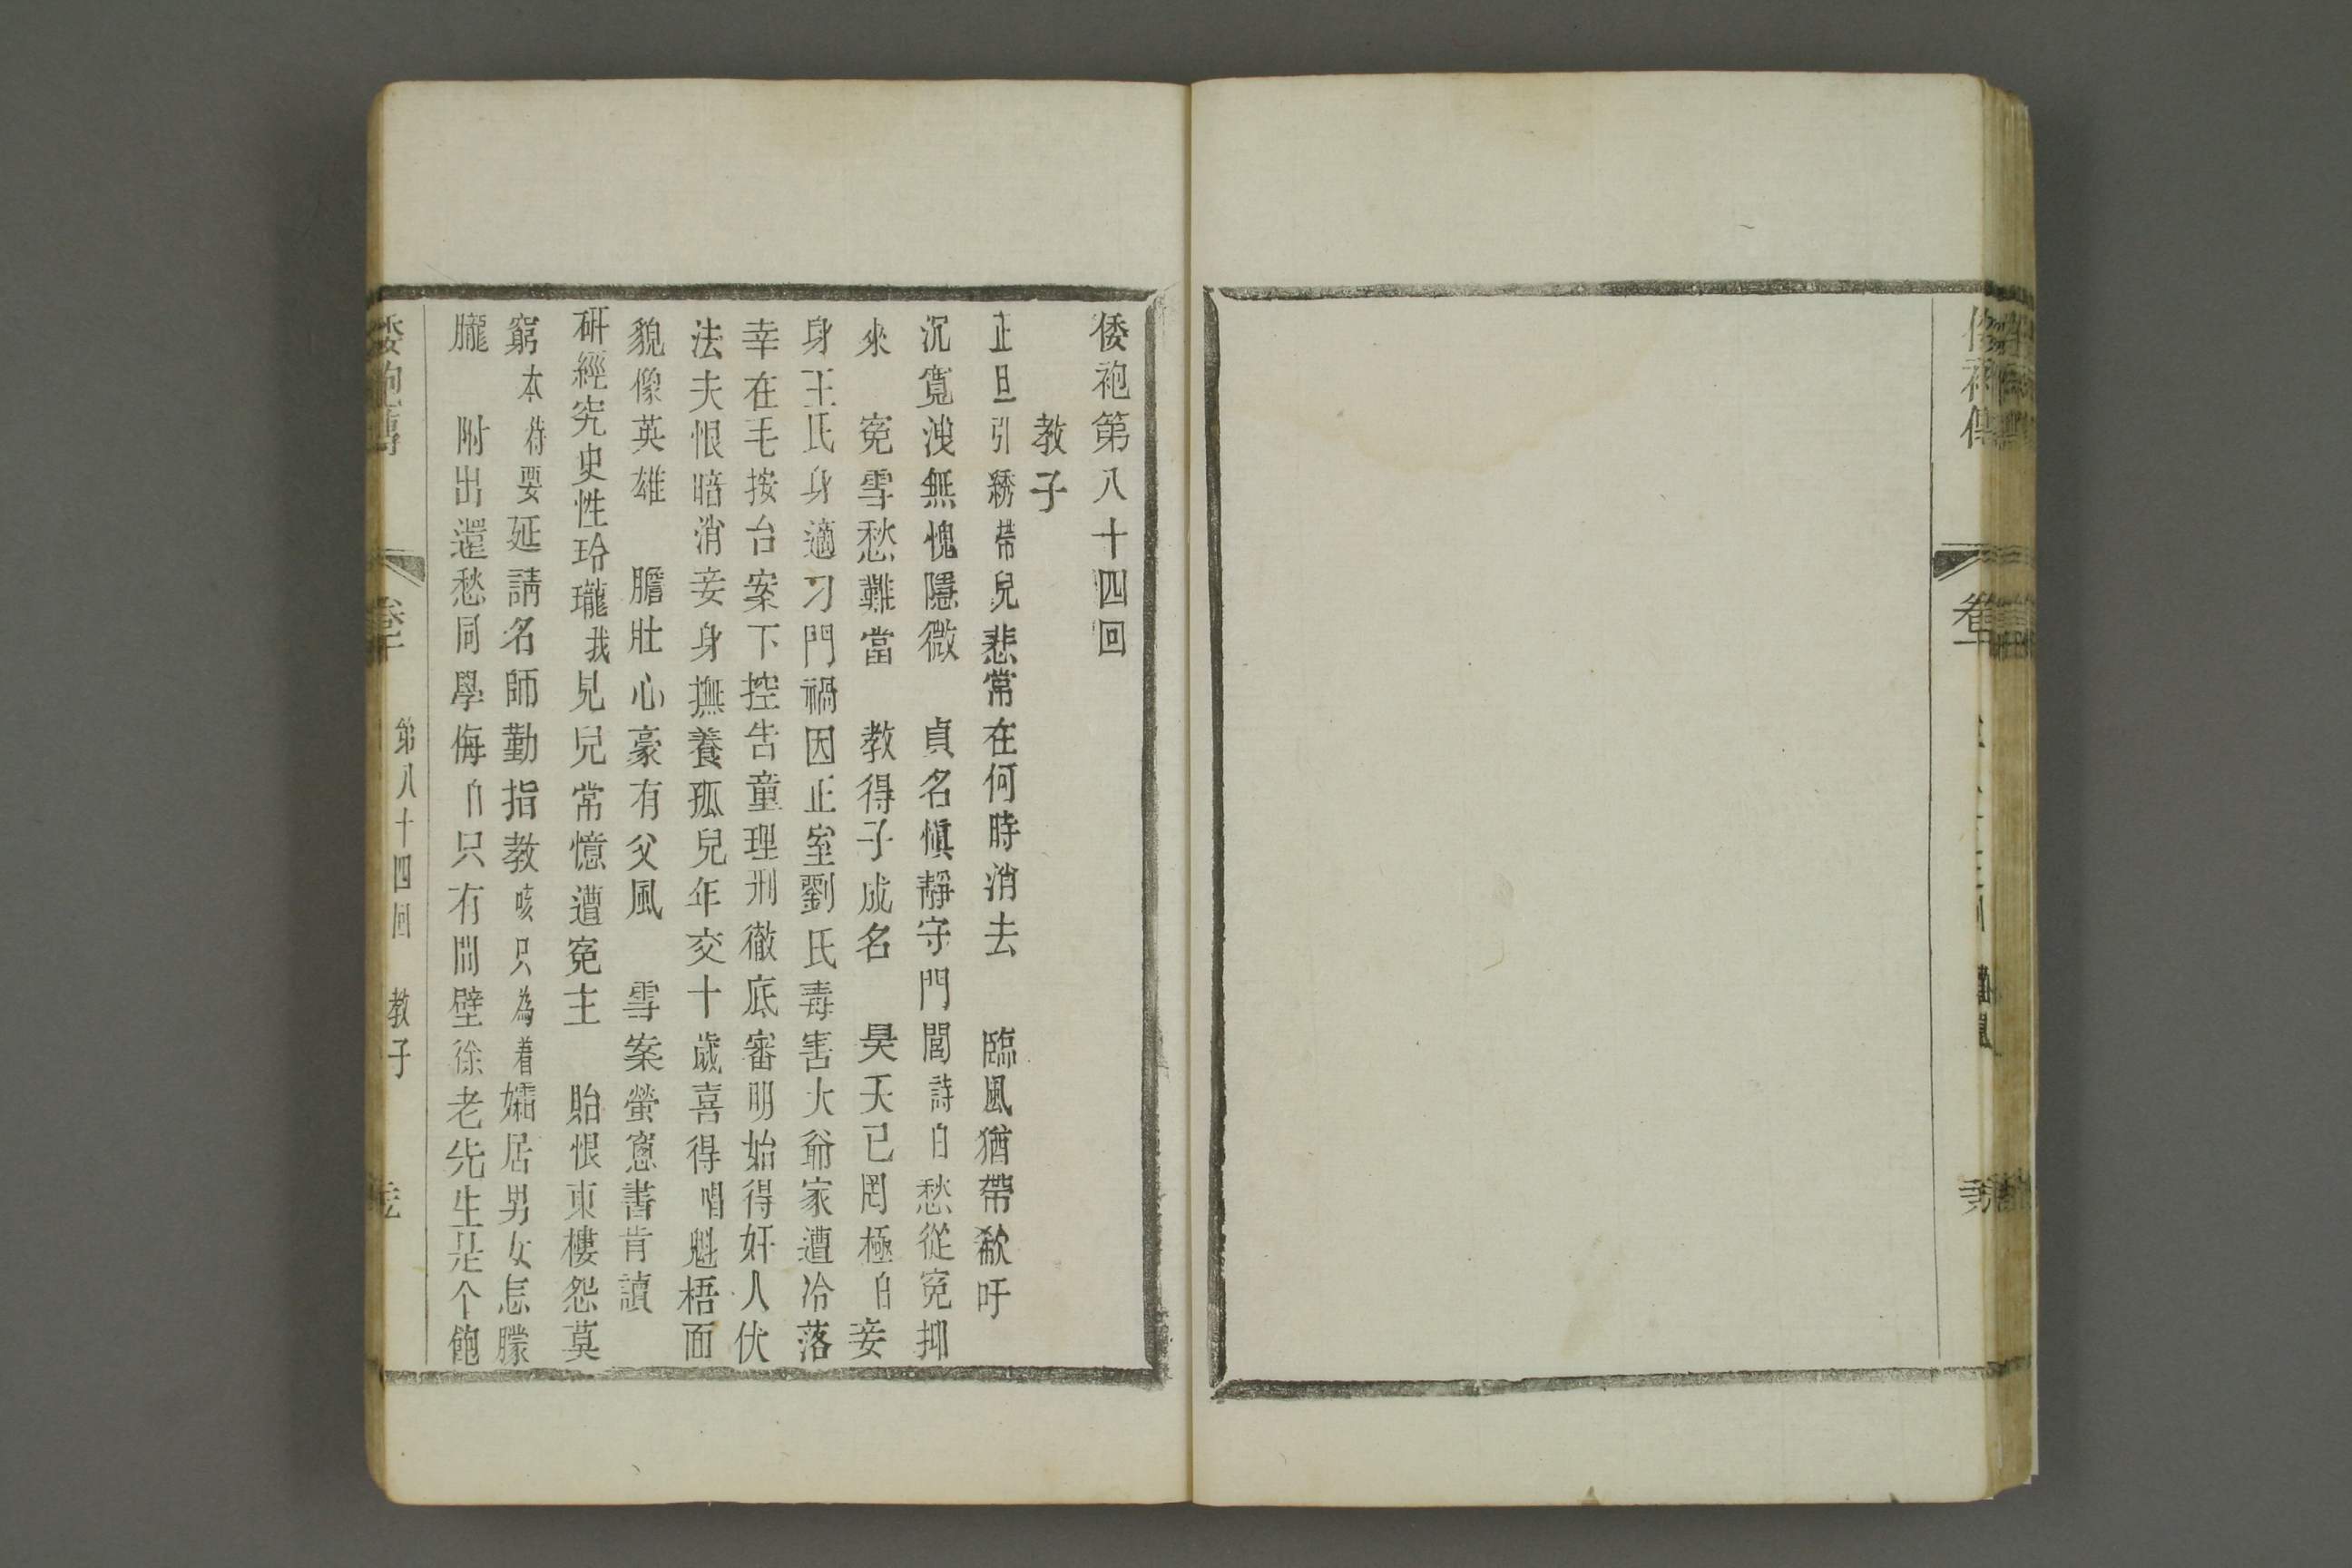 倭袍第八十四回
教子
正旦引綉帶兒悲常在何時消去　臨風猶帶欷吁
沉寃洩無愧隱微　貞名愼靜守門閭詩白愁從寃抑
來　寃雪愁難當　教得子成名　昊天已罔極白妾
身王氏身適刁門禍因正室劉氏毒害大爺家遭冷落
幸在毛按台案下控告童理刑徹底審明始得奸人伏
法夫恨暗消妾身撫養孤兒年交十歲喜得唱魁梧面
貌像英雄　膽壯心豪有父風　雪案螢窻書肯讀
硏經究史性玲瓏我見兒常憶遭寃主　貽恨東樓怨莫
窮本待要延請名師勤指教咳只為着孀居男女怎朦
朧　附出還愁同學侮白只有間壁徐老先生是个飽
倭袍傳
卷十
第八十四回　教子
倭袍傳